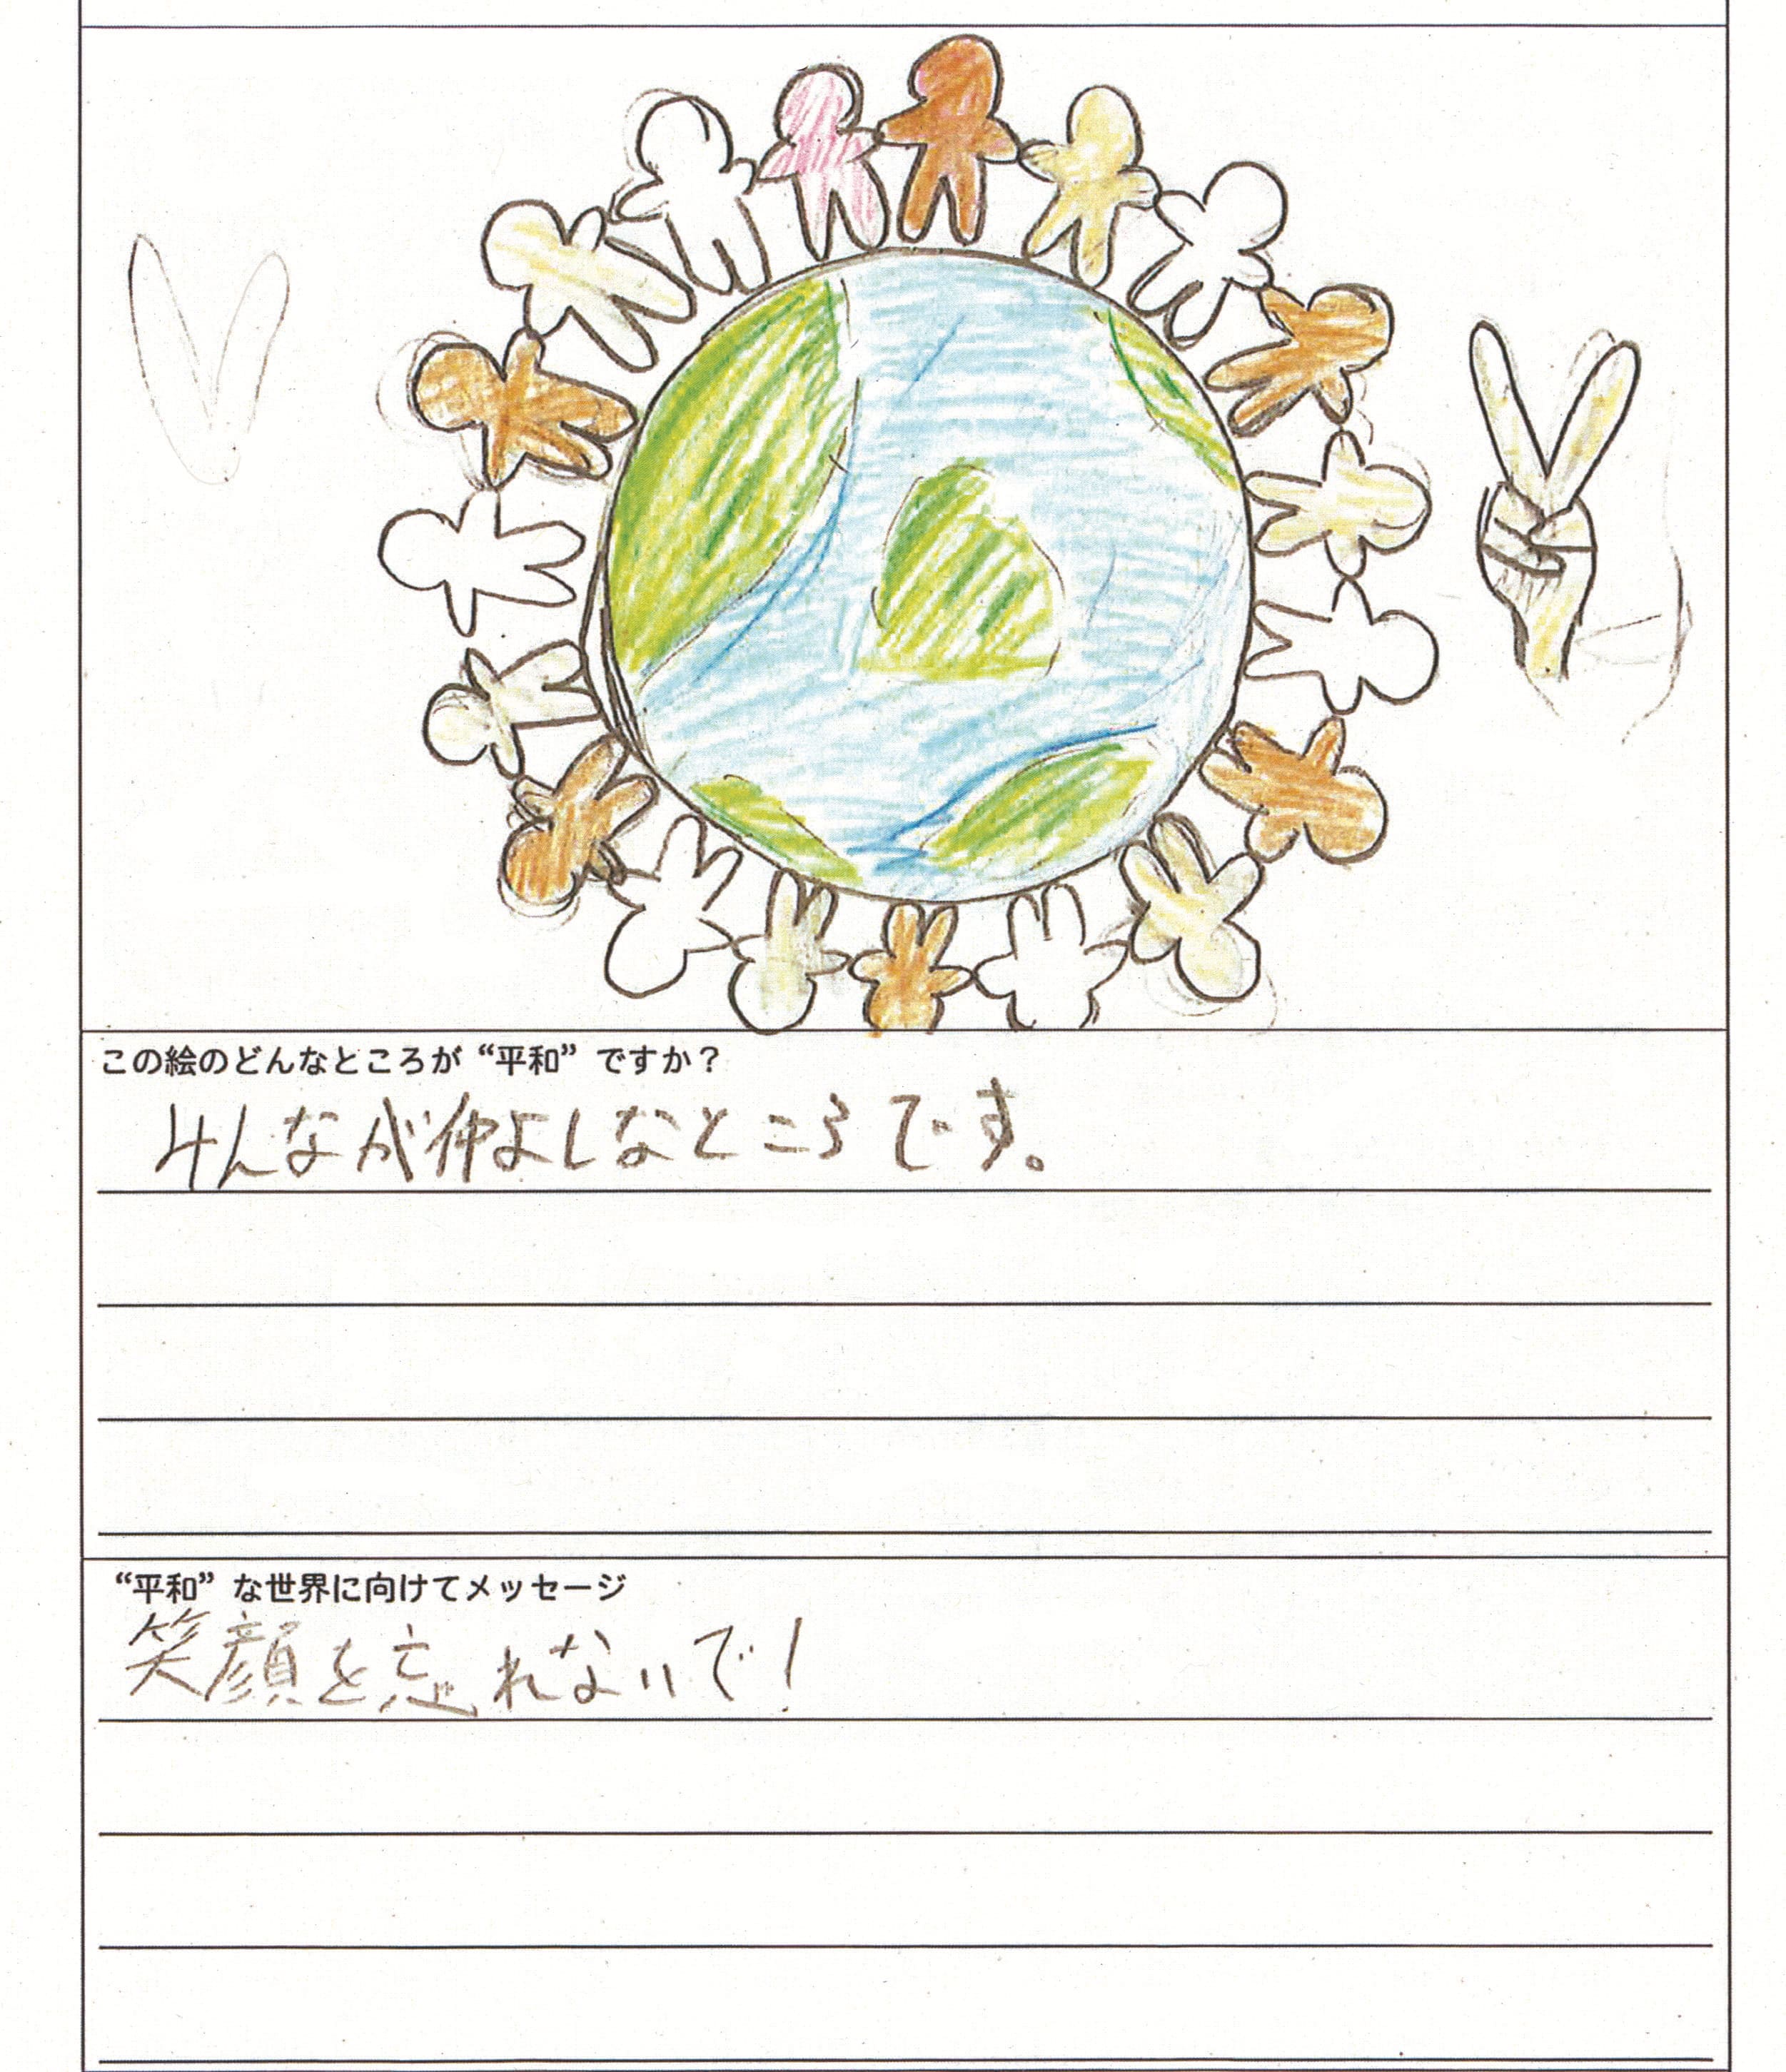 この絵のどんなところが“平和”ですか？
みんなが仲よしなところです。
“平和”な世界に向けてメッセージ
笑顔を忘れないで！